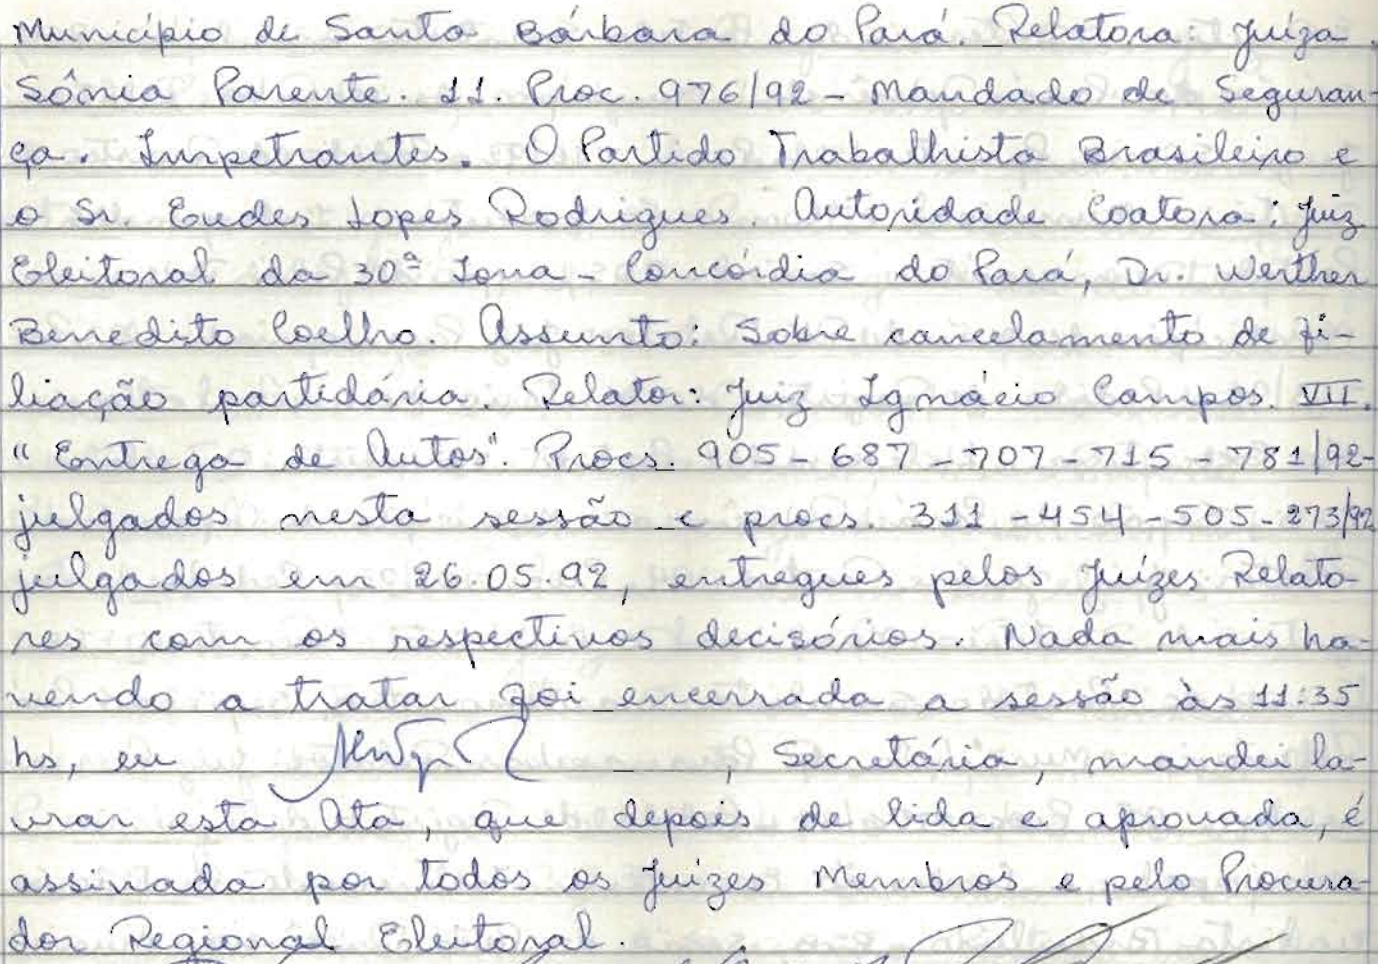 Município de Santa Bárbara do Pará. Relatora: Juíza
Sônia Parente. 11. Proc. 976/92 - Mandado de Seguran-
ça. Impetrantes. O Partido Trabalhista Brasileiro e
o Sr. Eudes Lopes Rodrigues. Autoridade Coatora: Juiz
Eleitoral da 30ª Zona - Concórdia do Pará, Dr. Werther
Benedito Coelho. Assunto: Sobre cancelamento de fi-
liação partidária. Relator: Juiz Ignácio Campos. VII.
"Entrega de Autos". Procs. 905 - 687 - 707 - 715 - 781/92-
julgados nesta sessão e procs. 311 - 454 - 505 - 273/92
julgados em 26.05.92, entregues pelos Juízes Relato-
res com os respectivos decisórios. Nada mais ha-
vendo a tratar foi encerrada a sessão às 11:35
hs, eu , Secretária, mandei la-
vrar esta Ata, que depois de lida e aprovada, é
assinada por todos os Juízes Membros e pelo Procura-
dor Regional Eleitoral.